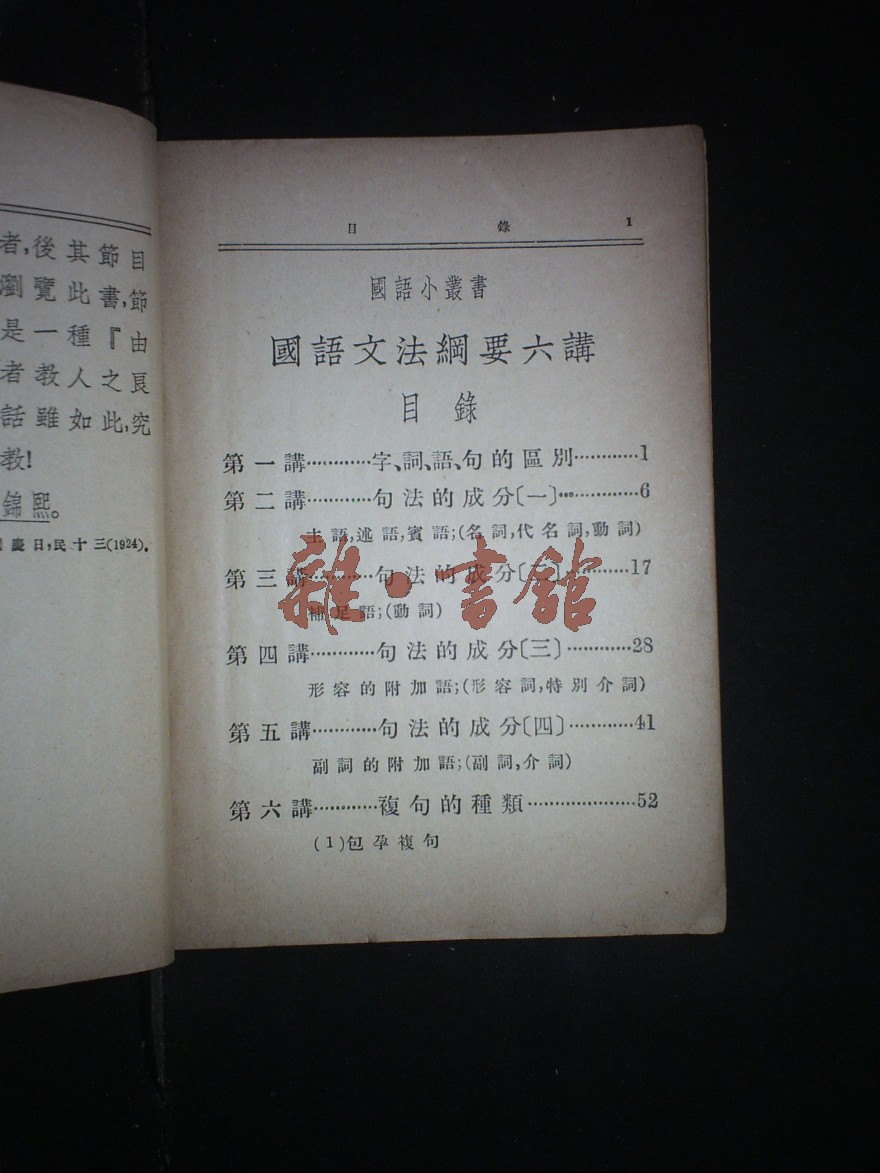 者,後其節目
瀏覽此書,節
是一種『由
者教人之良
話雖如此,究
教!
錦熙。
慶日,民十三(1924)。
目錄 1
國語小叢書
國語文法綱要六講
目錄
第一講…………字、詞、語、句的區別…………1
第二講…………句法的成分〔一〕…………6
主語,述語,賓語;(名詞,代名詞,動詞)
第三講…………句法的成分〔二〕…………17
補足語;(動詞)
第四講…………句法的成分〔三〕…………28
形容的附加語;(形容詞,特別介詞)
第五講…………句法的成分〔四〕…………41
副詞的附加語;(副詞,介詞)
第六講…………複句的種類…………………52
(1)包孕複句
雜·書館